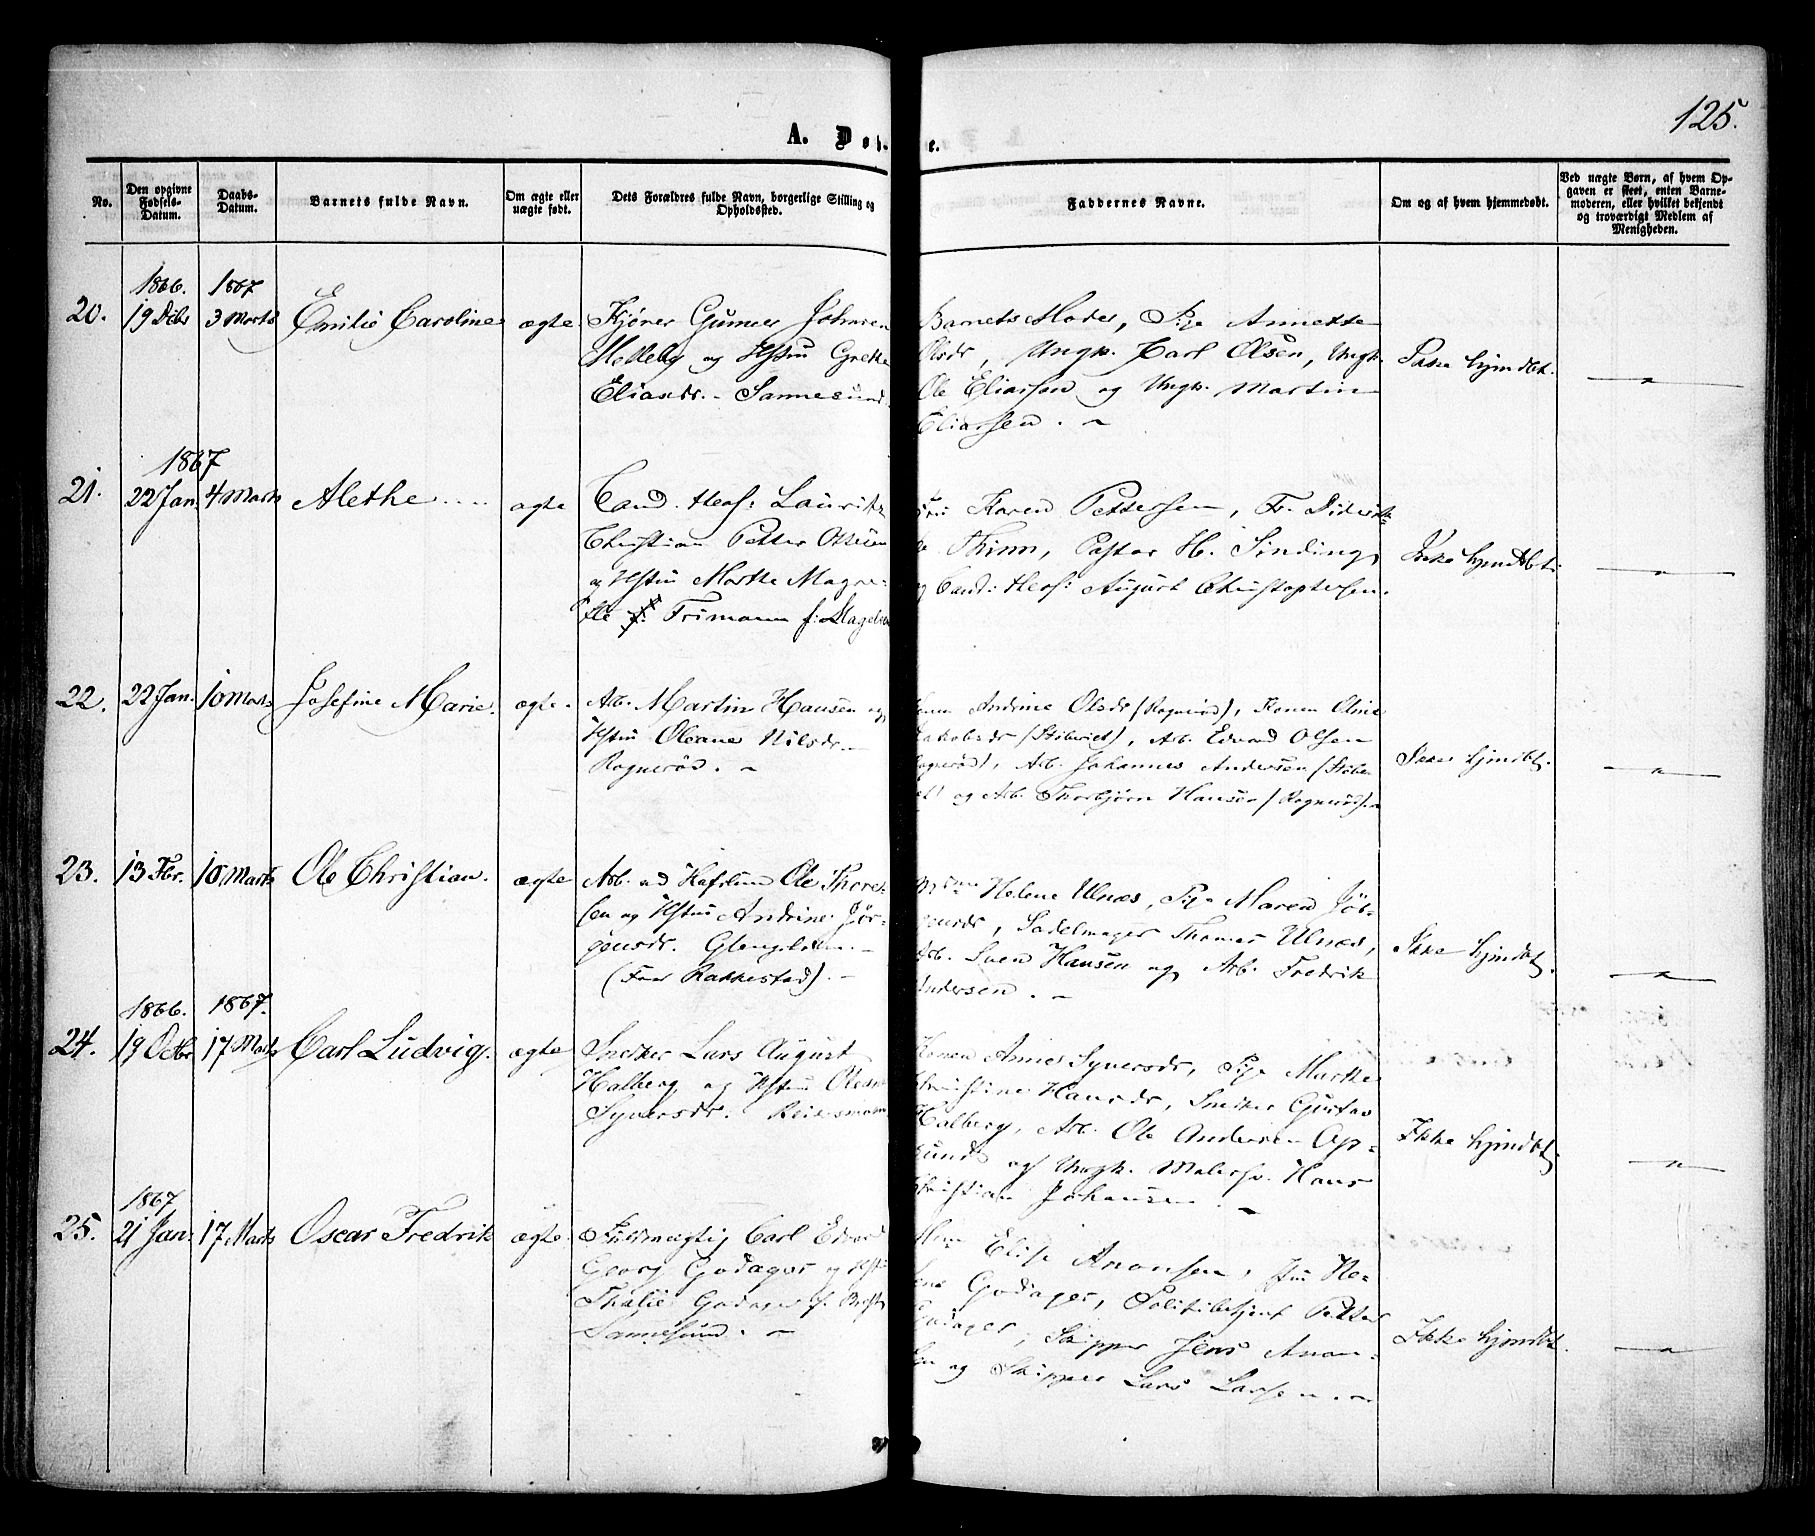 125.
A. Døb- e.
No.
Den opgivne Fødsels-Datum.
Daabs-Datum.
Barnets fulde Navn.
Om ægte eller uægte født.
Dets Forældres fulde Navn, borgerlige Stilling og Opholdssted.
Faddernes Navne.
Om og af hvem hjemmedøbt.
Ved uægte Børn, af hvem Opgaven er skeet, enten Barnemoderen, eller hvilket bekjendt og troværdigt Medlem af Menigheden.
20.
1866.
19 Dcbr
1867
3 Marts
Emilie Caroline
ægte
Gunner Johnsen
og Hstru Grethe
Eliasdr. - Sannesund
Barnets Moder, Pige Annette
Olsdr, Ungk. Carl Olsen, Ungk.
Ole Eliassen og Ungk. Martin
Eliassen. ~
Ikke hjmdbt.
21.
1867
22 Jan.
4 Marts
Alethe
ægte
Cand. theol: Lauritz
Christian Petter Ottesen
og Hstru Marthe Magne-
Frimann f: Slagelsen
Karen Pettersen, Fr.
Thinn, Pastor H. Sinding,
og Cand: theol: August Christophersen.
Ikke hjmdbt.
22.
22 Jan.
10 Marts
Josefine Marie.
ægte.
Arb. Martin Hansen og
Hstru Oleane Nilsdr.
Rognerød. ~
Andrine Olsdr (Rognerød), Konen Oline
Jakobsdr (Stiberiet), Arb. Edvard Olsen
Rognerød), Arb. Johannes Andersen (Støbe
et) og Arb. Thorbjørn Hansen (Rognerødsen
Ikke hjmdbt.
23.
13 Fbr.
10 Marts
Ole Christian.
ægte
Arb. ved Hafslund Ole Thore-
sen og Hstru Andrine Jør-
gensdr. Glengshølen. -
(Fra Rakkestad). -
Helene Ulnæs, Pige Maren Jør-
gensdr, Sadelmager Thomas Ulnæs,
Arb. Sven Hansen og Arb. Fredrik
Andersen. ~
Ikke hjmdbt.
24.
1866.
19 Octbr
1867.
17 Marts
Carl Ludvig.
ægte
Snedker Lars August
Halberg og Hstru Oleane
Syversdr.
Konen Anne Syversdr, Pige Marthe
Christine Hansdr, Snedker Gustav
Halberg, Arb. Ole Andersen Op-
sund og Ungk. Malersv. Hans
Christian Johansen. ~
Ikke hjmdbt.
25.
1867
21 Jan.
17 Marts
Oscar Fredrik
ægte.
Fuldmægtig Carl Edvard
Georg Godager og Hstru
Thalie Godager f.
Sannesund. ~
Elise Aronsen, Fru He-
lene Godager, Politibetjent Petter
Godager, Skipper Jens Aron-
sen og Skipper Lars Larsen. ~
Ikke hjmdbt.